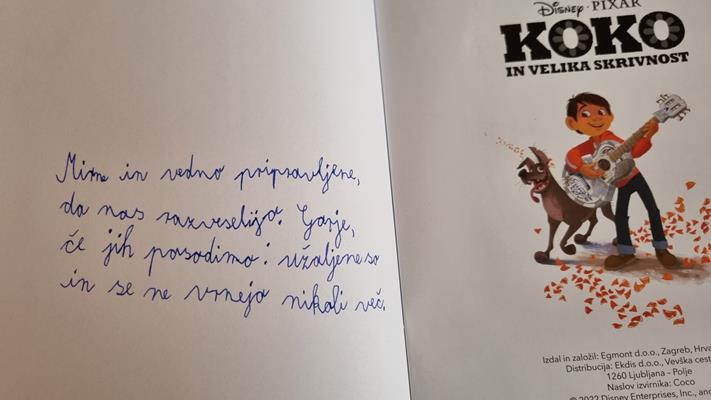 Mirne in vedno pripravljene,
da nas razveselijo. Gorje,
če jih posodimo: užaljene so
in se ne vrnejo nikoli več.
Disney · PIXAR
KOKO
IN VELIKA SKRIVNOST
Izdal in založil: Egmont d.o.o., Zagreb, Hrva
Distribucija: Ekdis d.o.o., Vevška cest
1260 Ljubljana - Polje
Naslov izvirnika: Coco
© 2022 Disney Enterprises, Inc., and